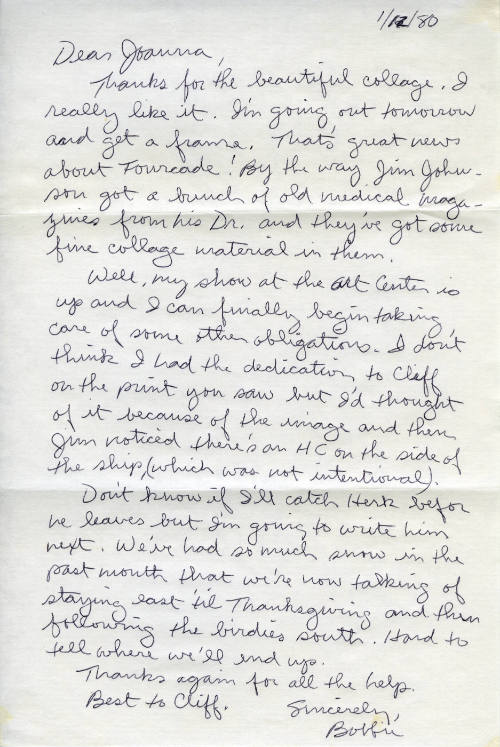 1/12/80
Dear Joanna,
Thanks for the beautiful collage. I
really like it. I'm going out tomorrow
and get a frame. That's great news
about Fourcade! By the way, Jim John-
son got a bunch of old medical maga-
zines from his Dr. and they've got some
fine collage material in them.
Well, my show at the Art Center is
up and I can finally begin taking
care of some other obligations. I don't
think I had the dedication to Cliff
on the print you saw but I'd thought
of it because of the image and then
Jim noticed there's an HC on the side of
the ship, (which was not intentional).
Don't know if I'll catch Herk befor
he leaves but I'm going to write him
next. We've had so much snow in the
past month that we're now talking of
staying east 'til Thanksgiving and then
following the birdies south. Hard to
tell where we'll end up.
Thanks again for all the help.
Best to Cliff.
Sincerely,
Bobbie